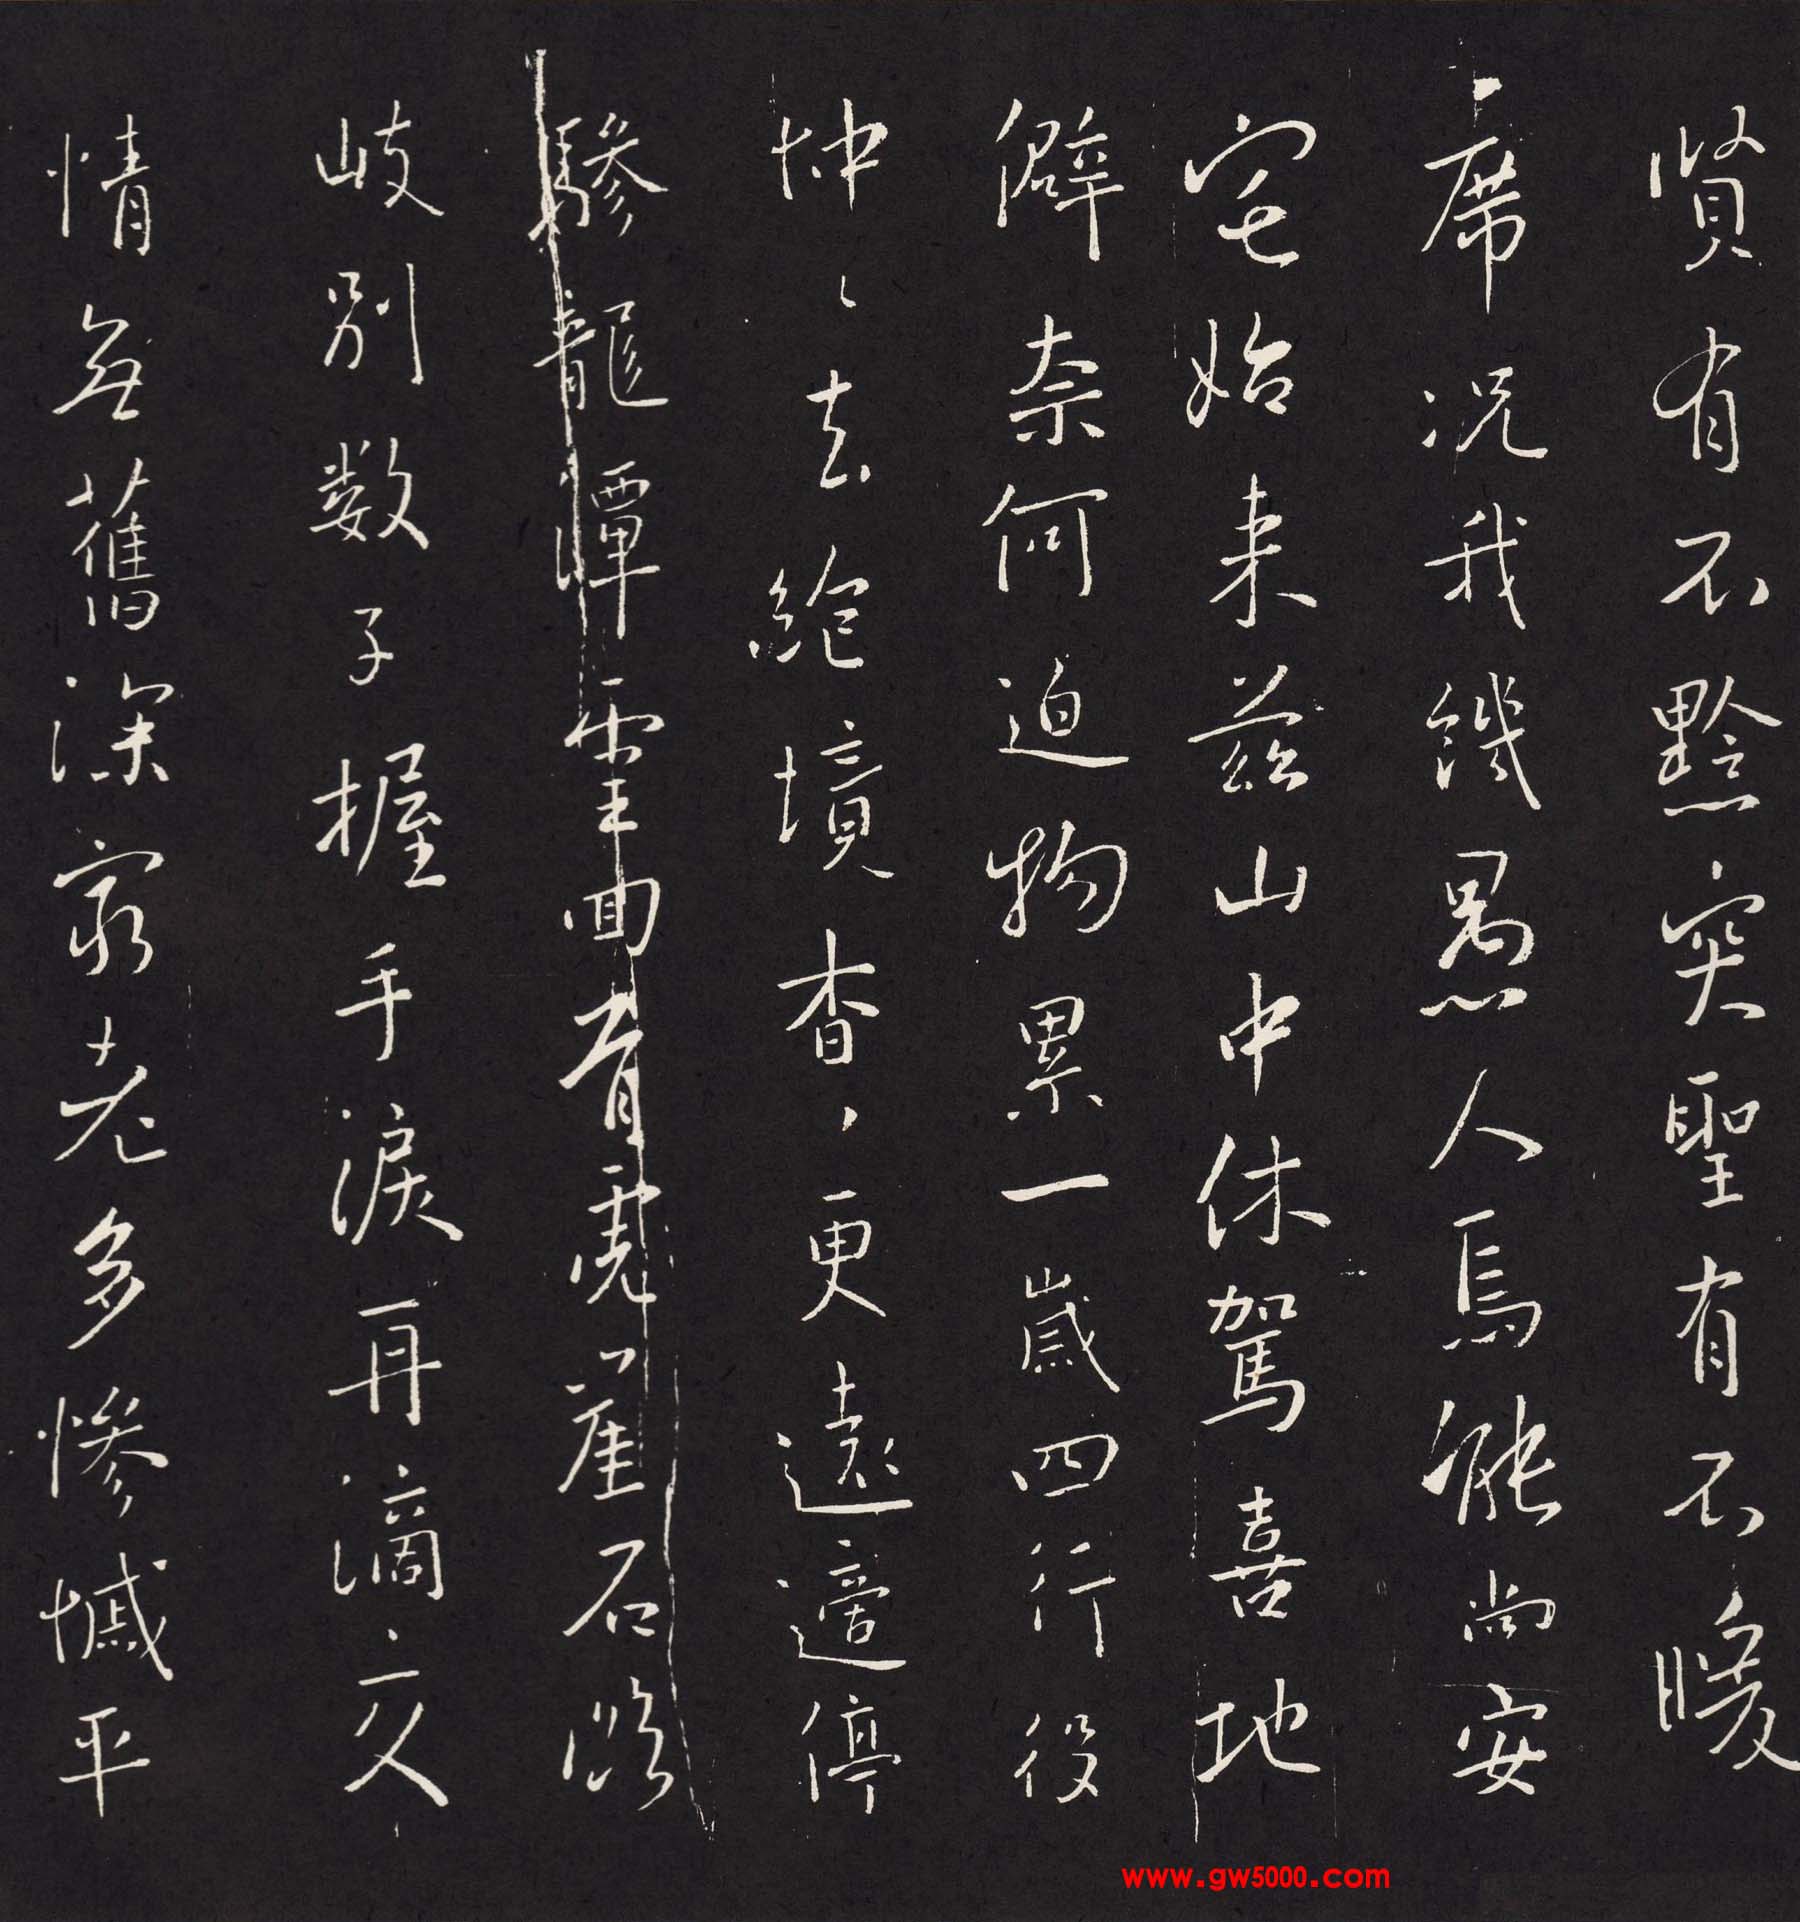 贤有不黔突聖有不暖
席况我飢愚人焉能尚安
宅始来兹山中休駕喜地
僻奈何迫物累一歲四行役
忡ミ去絶境杳ミ更遠適停
驂龍潭雲迴首虎崖石臨
岐别数子握手淚再滴交
情無舊深窮老多惨慽平
www.gw5000.com